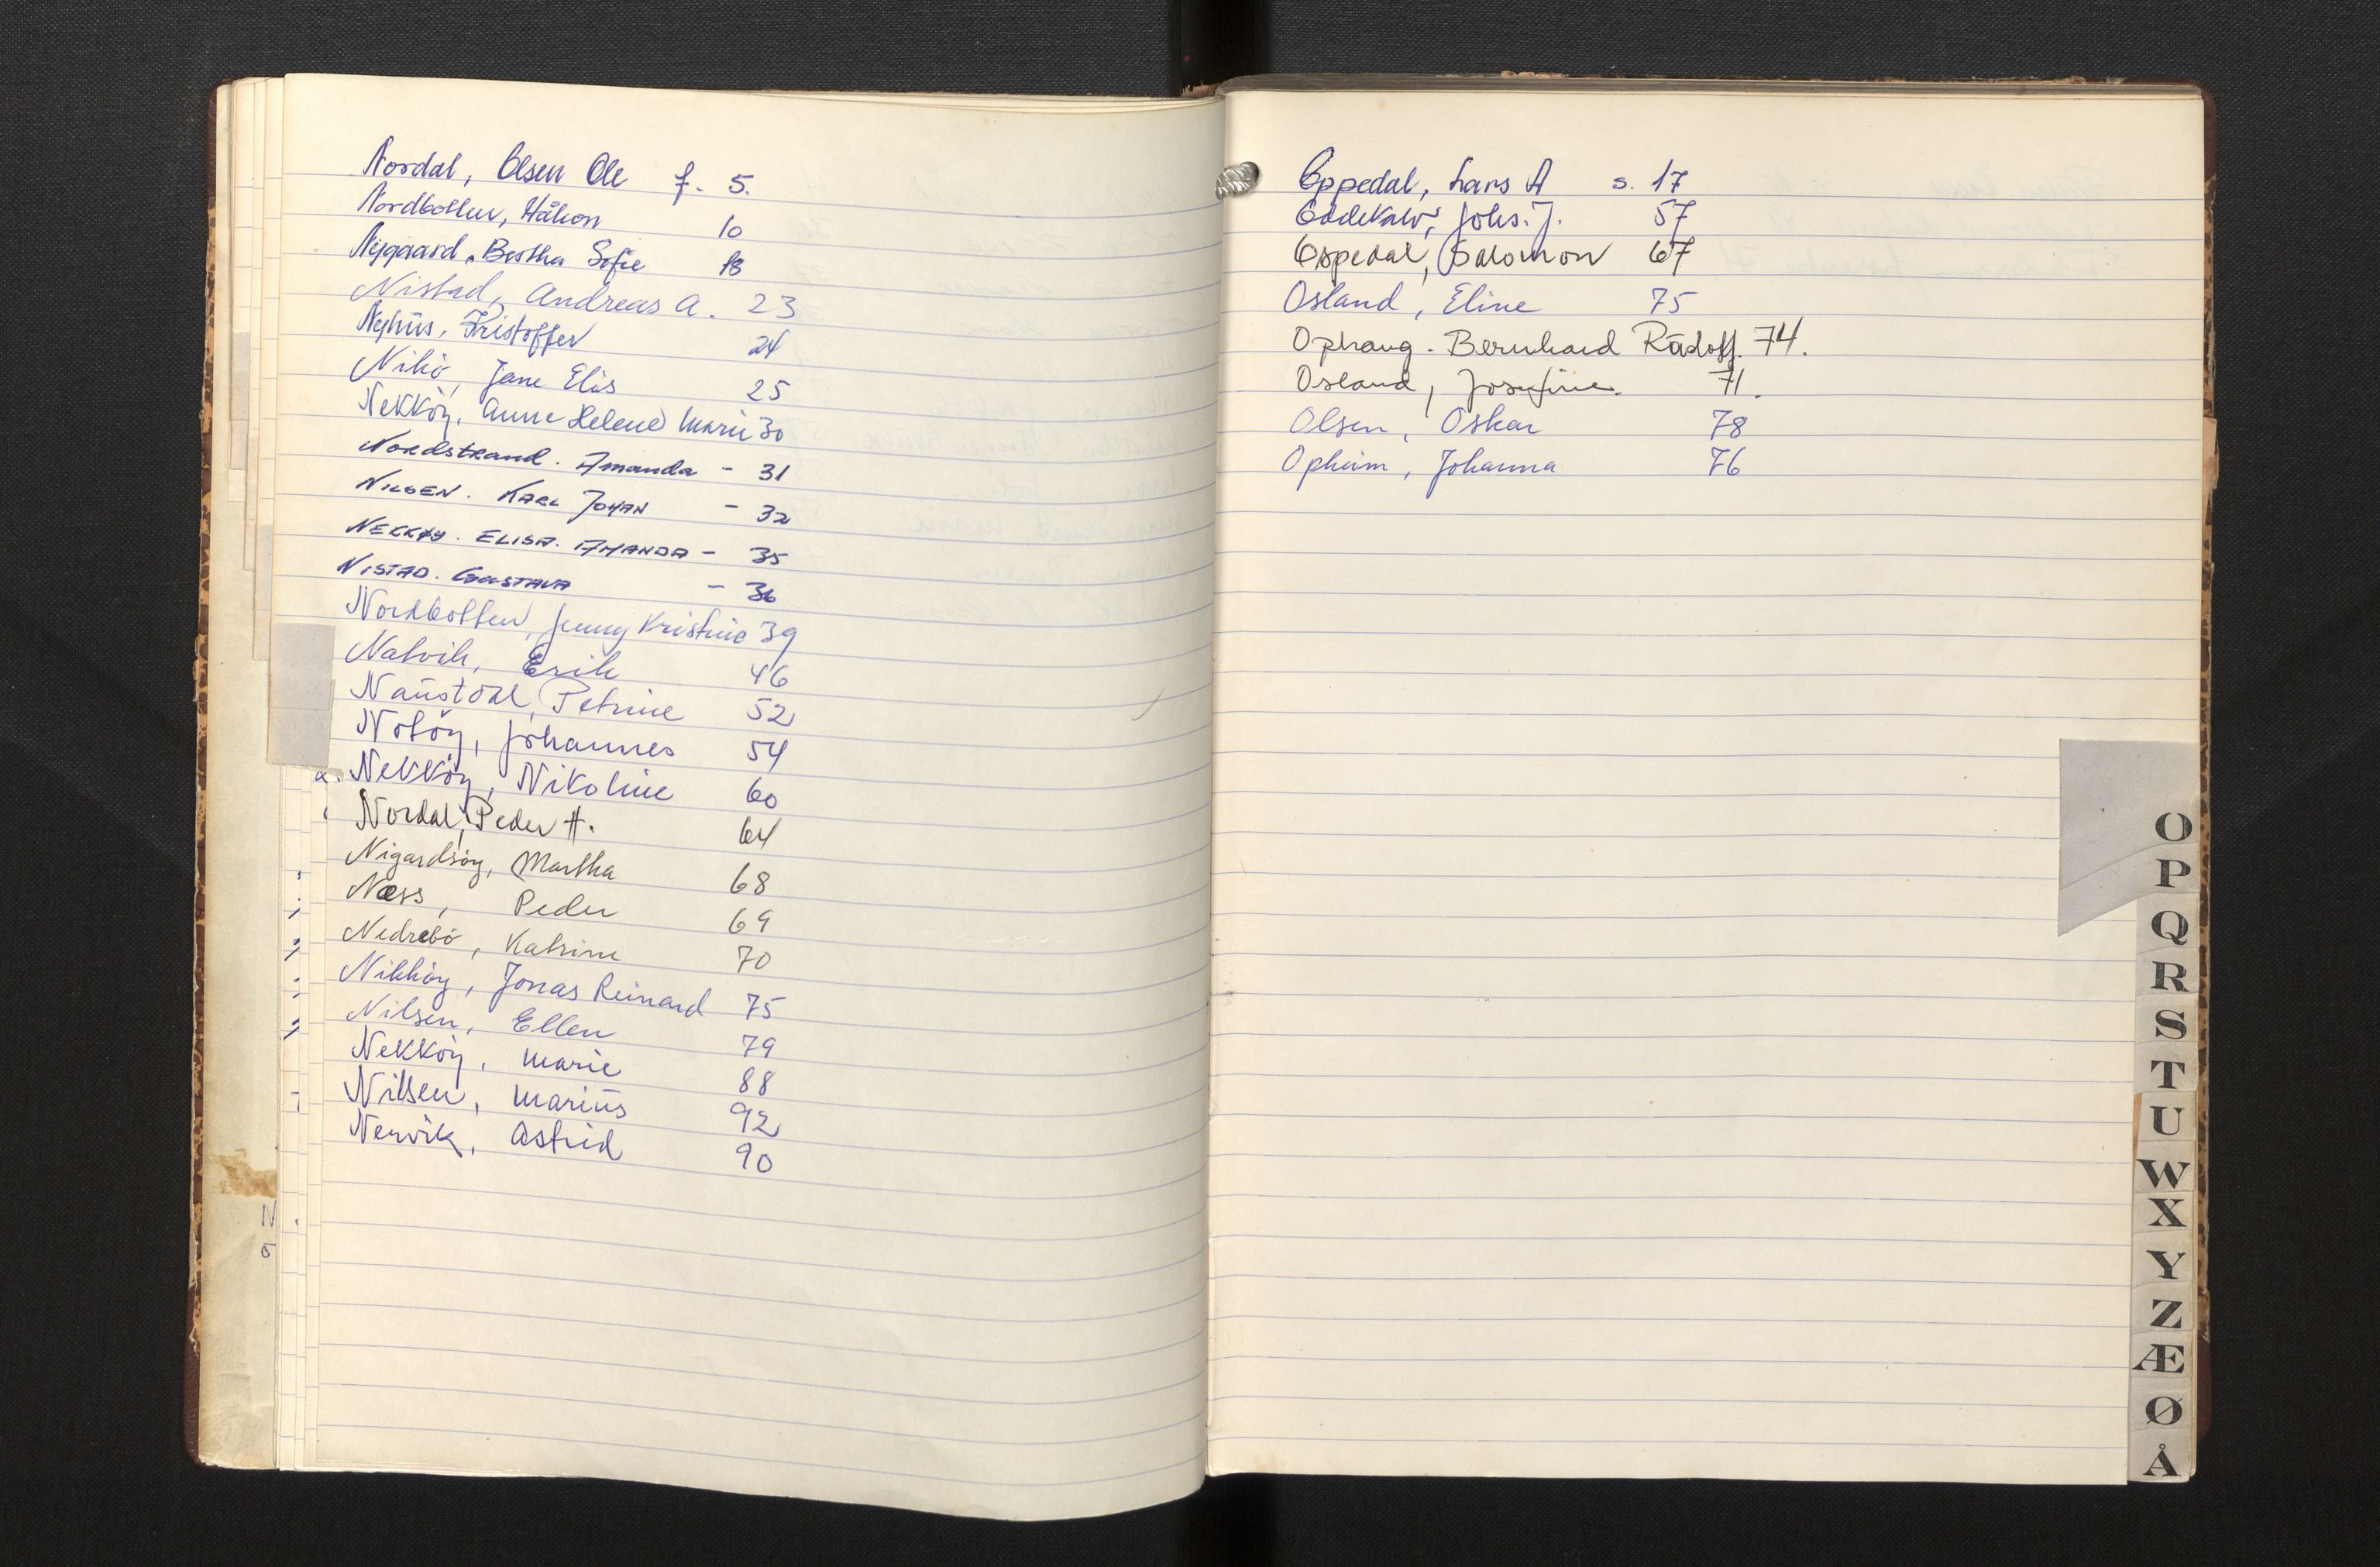 Nordal, Olsen Ole f. 5.
Nordbotten, Håkon 10
Nygaard, Bertha Sofie 18
Nistad, Andreas A. 23
Nyhus, Kristoffer 24
Nikö, Jane Elis 25
Nekköy, Anne Helene Marie 30
Nordstrand. Amanda - 31
NILSEN. KARL JOHAN - 32
NEKKØY. ELISA. AMANDA - 35
NISTAD. GUSTAVA - 36
Nordbotten, Jenny Kristine 39
Natvik, Erik 46
Naustdal, Petrine 52
Notöy, Johannes 54
Nekköy, Nikoline 60
Nordal, Peder H. 64
Nigardsöy, Martha 68
Næss, Peder 69
Nedrebö, Katrine 70
Nikköy, Jonas Reinard 75
Nilsen, Ellen 79
Nekköy, Marie 88
Nilsen, Marius 92
Nervik, Astrid 90
N
Oppedal, Lars A s. 17
Johs. J. 57
Oppedal, Salomon 67
Osland, Eline 75
Ophaug. Bernhard 74.
Osland, Josefine. 71.
Olsen, Oskar 78
Opheim, Johanna 76
O
P
Q
R
S
T
U
W
X
Y
Z
Æ
Ø
Å